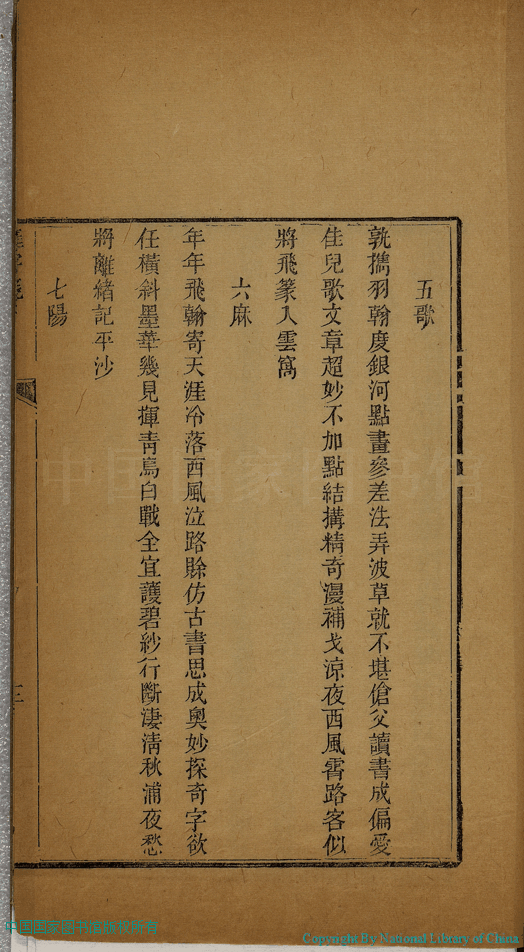 五歌
孰攜羽翰度銀河點畫參差法弄波草就不堪傖父讀書成偏愛
佳兒歌文章超妙不加點結搆精奇漫補戈涼夜西風霄路客似
將飛篆入雲窩
六麻
年年飛翰寄天涯冷落西風泣路賒仿古書思成奧妙探奇字欲
任橫斜墨華幾見揮青鳥白戰全宜護碧紗行斷淒清秋浦夜愁
將離緒記平沙
七陽
Copyright By National Library of China